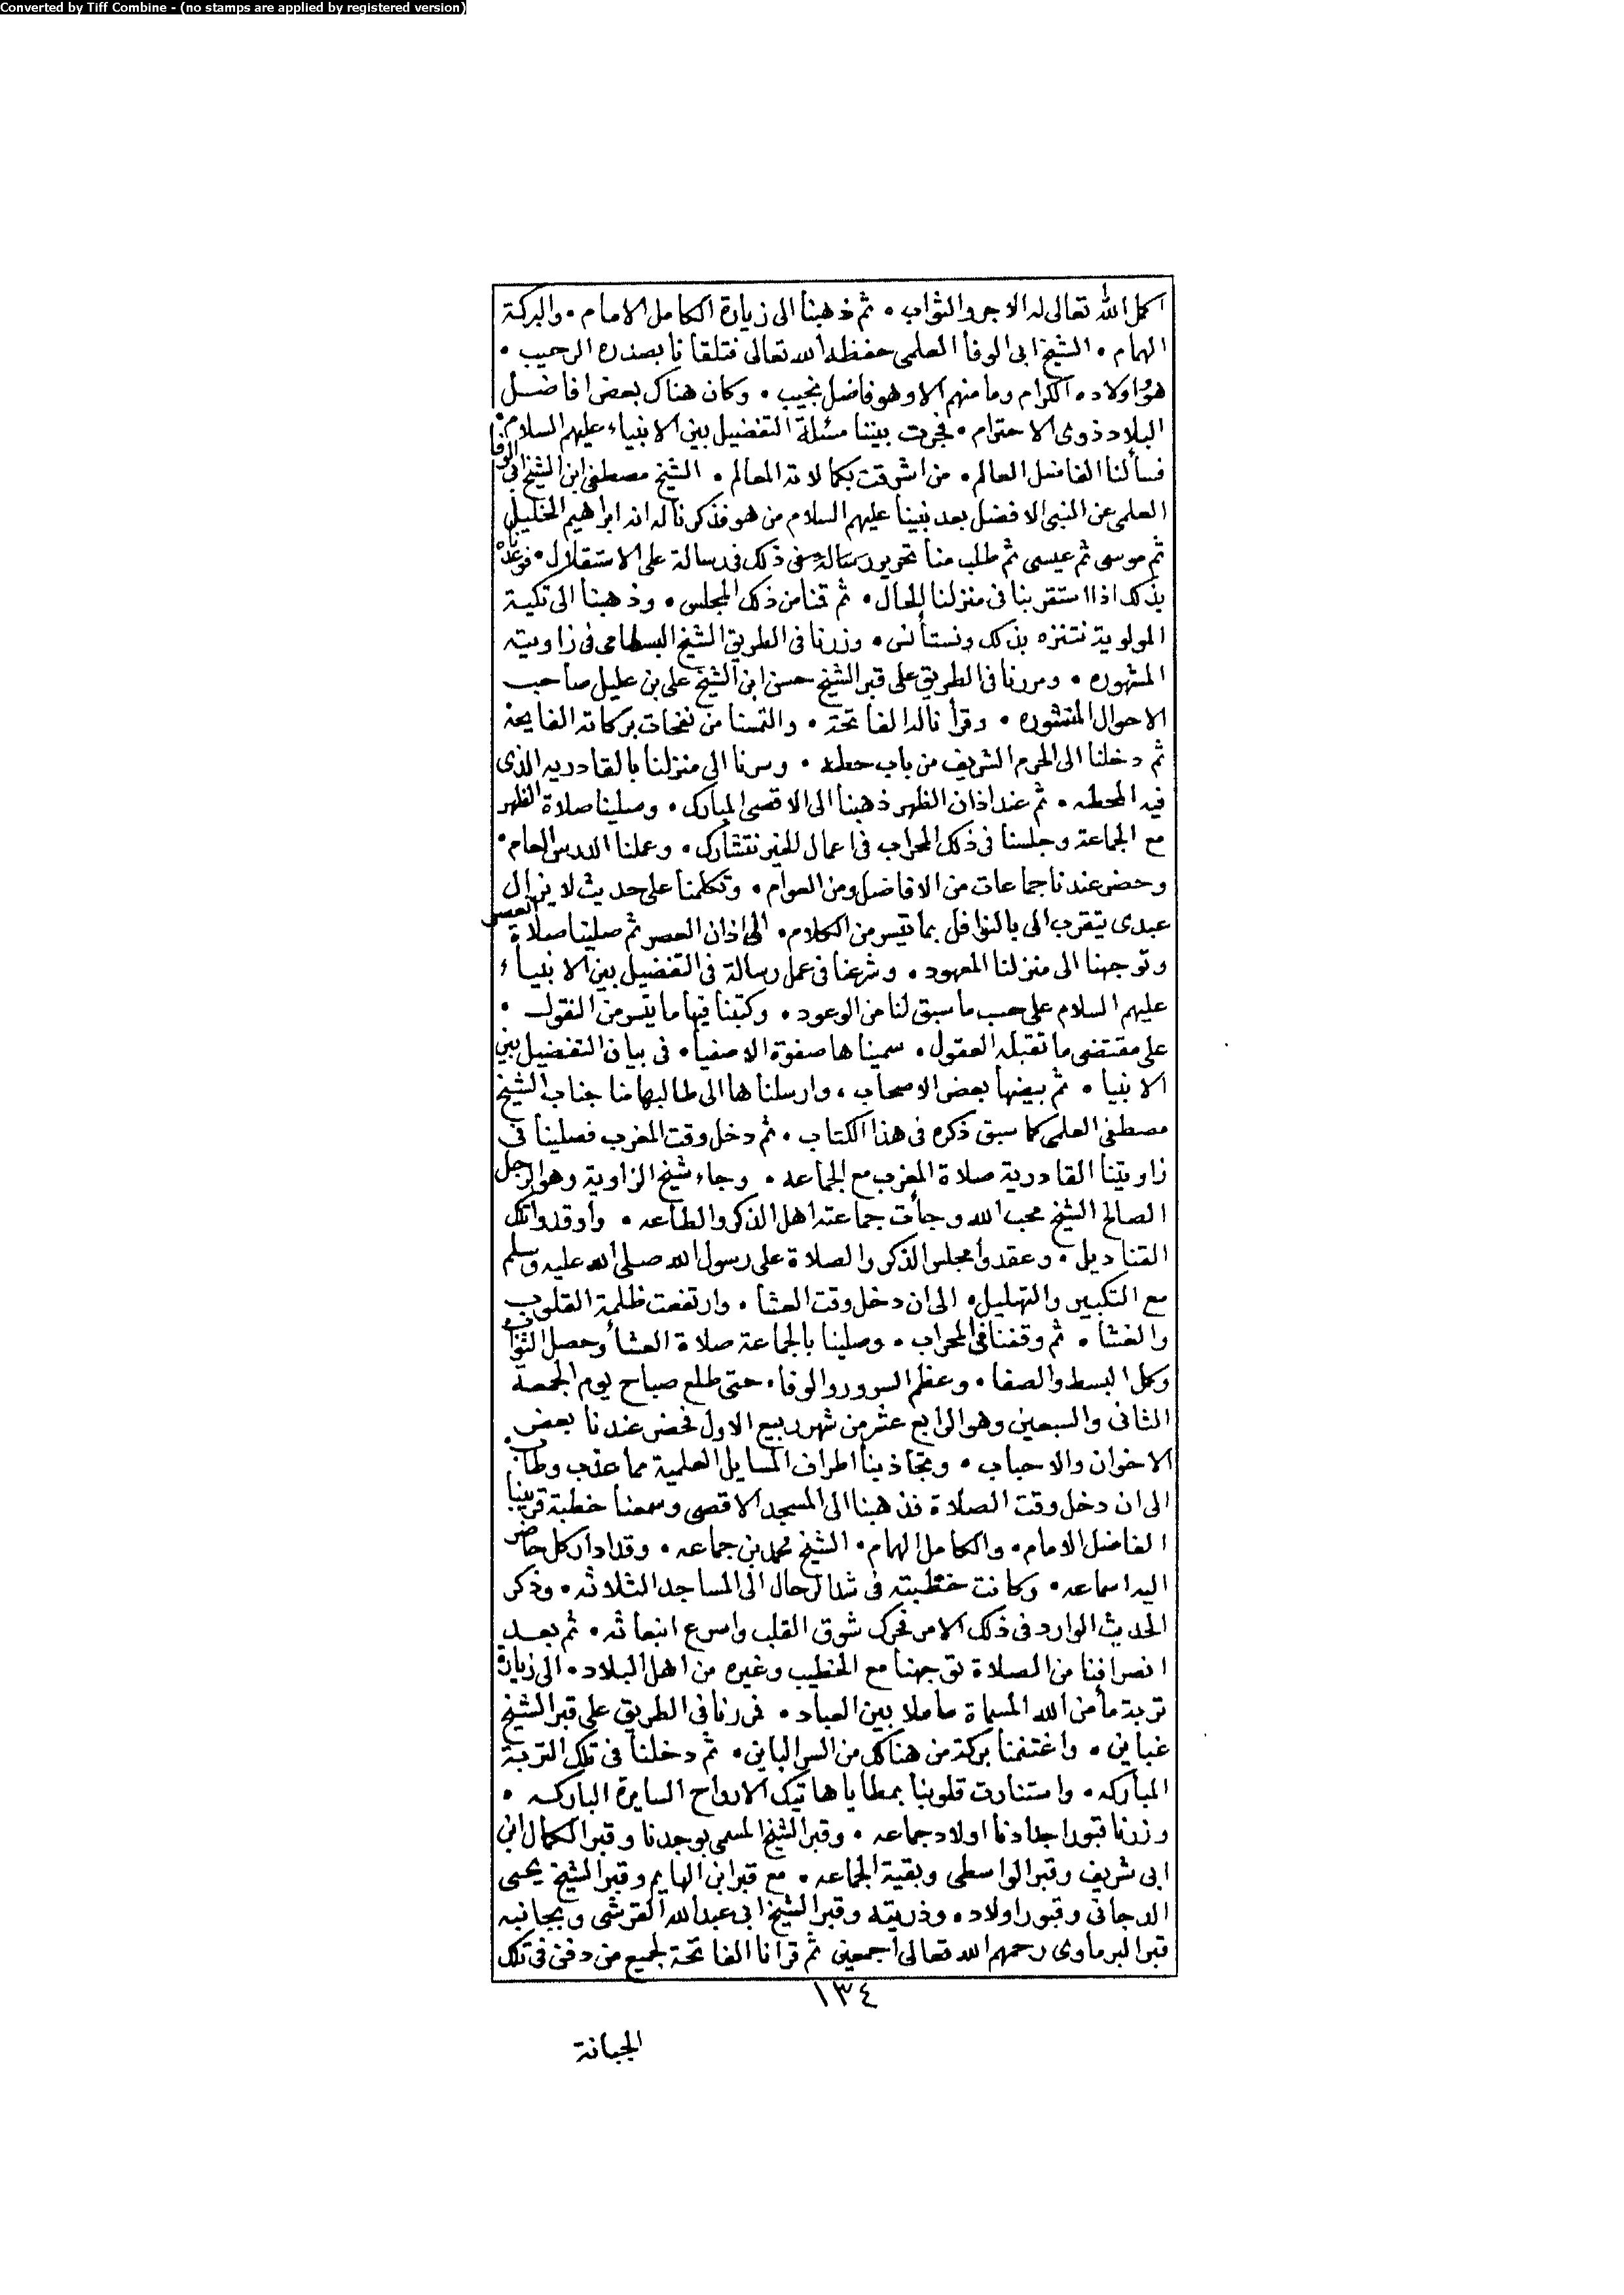 Converted by Tiff Combine - (no stamps are applied by registered version)
اكمل الله تعالى له الاجر والثواب . ثم ذهبنا الى زيارة الكامل الامام . والبركة
الهمام . الشيخ ابى الوفا العلمى حفظه الله تعالى فتلقانا بصدره الرحيب .
هو واولاده الكرام وما منهم الا وهو فاضل نجيب . وكان هناك بعض افاضل
البلاد ذوى الاحترام . فجرت بيننا مسئلة التفضيل بين الانبياء عليهم السلام .
فسألنا الفاضل العالم . من اشرقت بكمالاته المعالم . الشيخ مصطفى ابن الشيخ ابى الوفا
العلمى عن النبى الافضل بعد نبينا عليهم السلام من هو فذكرنا له انه ابراهيم الخليل
ثم موسى ثم عيسى ثم طلب منا تحرير رسالة فى ذلك فى رسالة على الاستقلال . فوعدناه
بذلك اذا استقر بنا فى منزلنا الحال . ثم قمنا من ذلك المجلس . وذهبنا الى تكية
المولوية نتنزه بذلك ونستأنس . وزرنا فى الطريق الشيخ البسطامى فى زاويته
المشهوره . ومررنا فى الطريق على قبر الشيخ حسن ابن الشيخ على بن عليل صاحب
الاحوال المنشوره . وقرأنا له الفاتحة . والتمسنا من نفحات بركاته الفايحة
ثم دخلنا الى الحرم الشريف من باب حطه . وسرنا الى منزلنا بالقادريه الذى
فيه المحطه . ثم عند اذان الظهر ذهبنا الى الاقصى المبارك . وصلينا صلاة الظهر
مع الجماعة وجلسنا فى ذلك المحراب فى اعمال الخير نتشارك . وعملنا الدرس العام .
وحضر عندنا جماعات من الافاضل ومن العوام . وتكلمنا على حديث لا يزال
عبدى يتقرب الى بالنوافل بما تيسر من الكلام . الى اذان العصر ثم صلينا صلاة العصر
وتوجهنا الى منزلنا المعهود . وشرعنا فى عمل رسالة فى التفضيل بين الانبياء
عليهم السلام على حسب ما سبق لنا من الوعود . وكتبنا فيها ما يتسر من النقول .
على مقتضى ما تقبله العقول . سميناها صفوة الاصفيا . فى بيان التفضيل بين
الانبيا . ثم بيضها بعض الاصحاب . وارسلناها الى طالبها منا جناب الشيخ
مصطفى العلمى كما سبق ذكره فى هذا الكتاب . ثم دخل وقت المغرب فصلينا فى
زاويتنا القادرية صلاة المغرب مع الجماعه . وجاء شيخ الزاوية وهو الرجل
الصالح الشيخ محب الله وجأت جماعته اهل الذكر والطاعه . واوقدوا تلك
القناديل . وعقدوا مجلس الذكر والصلاة على رسول الله صلى الله عليه وسلم
مع التكبير والتهليل . الى ان دخل وقت العشا . وارتفعت ظلمة القلوب
والغشا . ثم وقفنا فى المحراب . وصلينا بالجماعة صلاة العشا وحصل الثواب
وكمل البسط والصفا . وعظم السرور والوفا . حتى طلع صباح يوم الجمعة
الثانى والسبعين وهو الرابع عشر من شهر ربيع الاول فحضر عندنا بعض
الاخوان والاحباب . وتجاذبنا اطراف المسايل العلمية مما عذب وطاب .
الى ان دخل وقت الصلاة فذهبنا الى المسجد الاقصى وسمعنا خطبة قريبنا
الفاضل الامام . والكامل الهمام . الشيخ محمد بن جماعه . وقد ادار كل حاضر
اليه اسماعه . وكانت خطبته فى شد الرحال الى المساجد الثلاثه . وذكر
الحديث الوارد فى ذلك الامر فحرك شوق القلب واسرع انبعاثه . ثم بعد
انصرافنا من الصلاة توجهنا مع الخطيب وغيره من اهل البلاد . الى زيارة
تربة مأمن الله المسماة ماملا بين العباد . فمررنا فى الطريق على قبر الشيخ
غباين . واغتنمنا بركة من هنالك من السر الباين . ثم دخلنا فى تلك التربة
المباركه . واستنارت قلوبنا بمطايا هاتيك الارواح السايرة الباركه .
وزرنا قبور اجدادنا اولاد جماعه . وقبر الشيخ المسمى بوجدنا وقبر الكمال ابن
ابى شريف وقبر الواسطى وبقية الجماعه . مع قبر ابن الهايم وقبر الشيخ يحيى
الدجانى وقبور اولاده وذريته وقبر الشيخ ابى عبد الله القرشى وبجانبه
قبر البرماوى رحمهم الله تعالى اجمعين ثم قرانا الفاتحة لجميع من دفن فى تلك
١٣٤
الجبانة